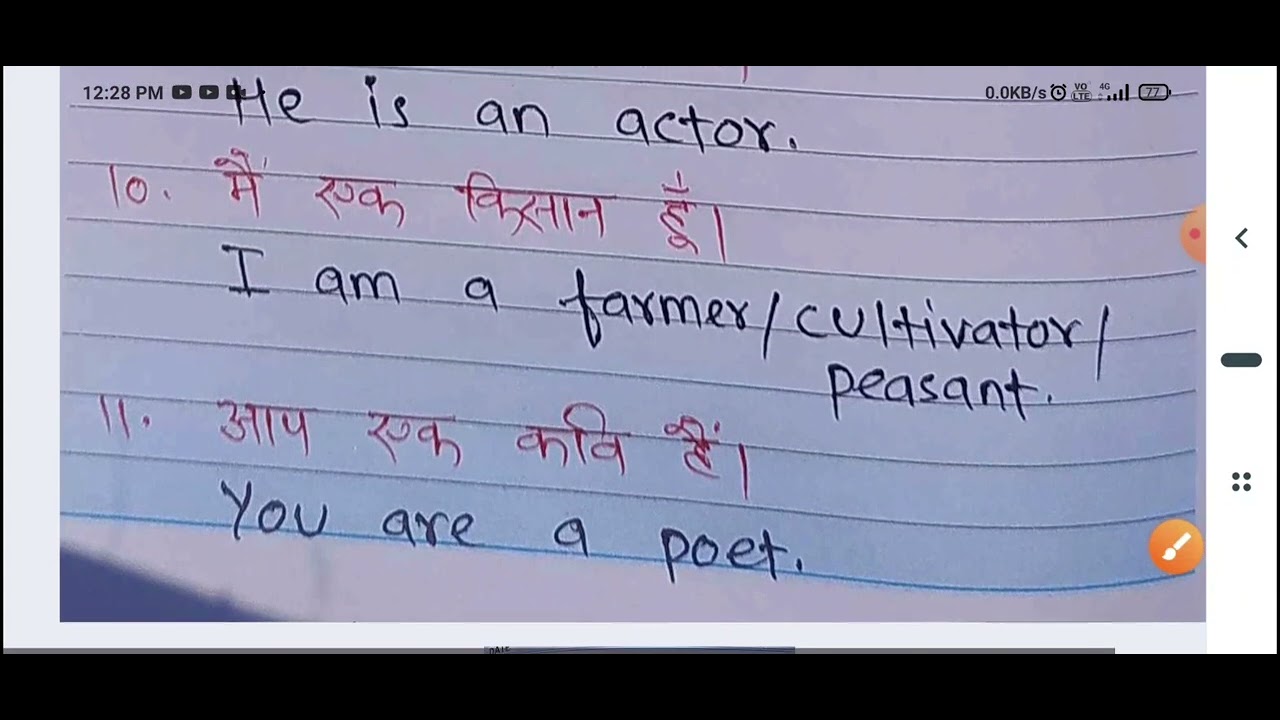 12:28 PM 0.0KB/s VO LTE 4G 77
He is an actor.
10. मैं एक किसान हूँ।
I am a farmer/cultivator/
peasant.
11. आप एक कवि हैं।
You are a poet.